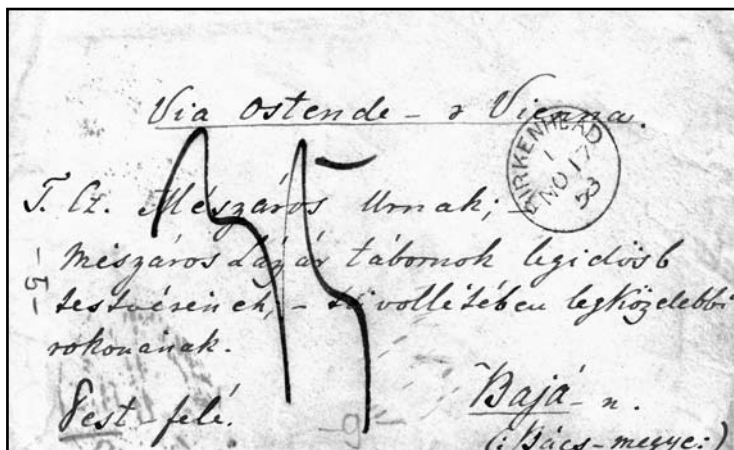 Via Ostende - & Vienna.
BIRKENHEAD
1
NO 17
53
T. Cz. Mészáros Urnak; -
Mészáros Lázár tábornok legidősb
testvérének, - távollétében legközelebbi
rokonának.
Pest felé.
Bajá-n.
(: Bács-megye:)